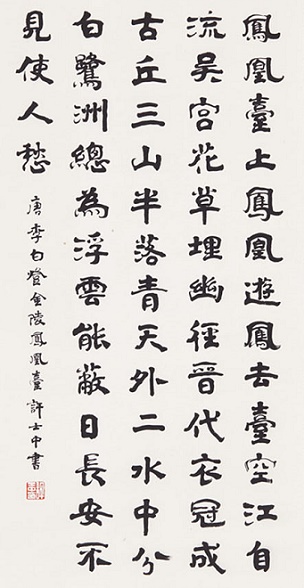 鳳凰臺上鳳凰遊鳳去臺空江自
流吳宮花草埋幽徑晉代衣冠成
古丘三山半落青天外二水中分
白鷺洲總為浮雲能蔽日長安不
見使人愁
唐李白登金陵鳳凰臺 許士中書